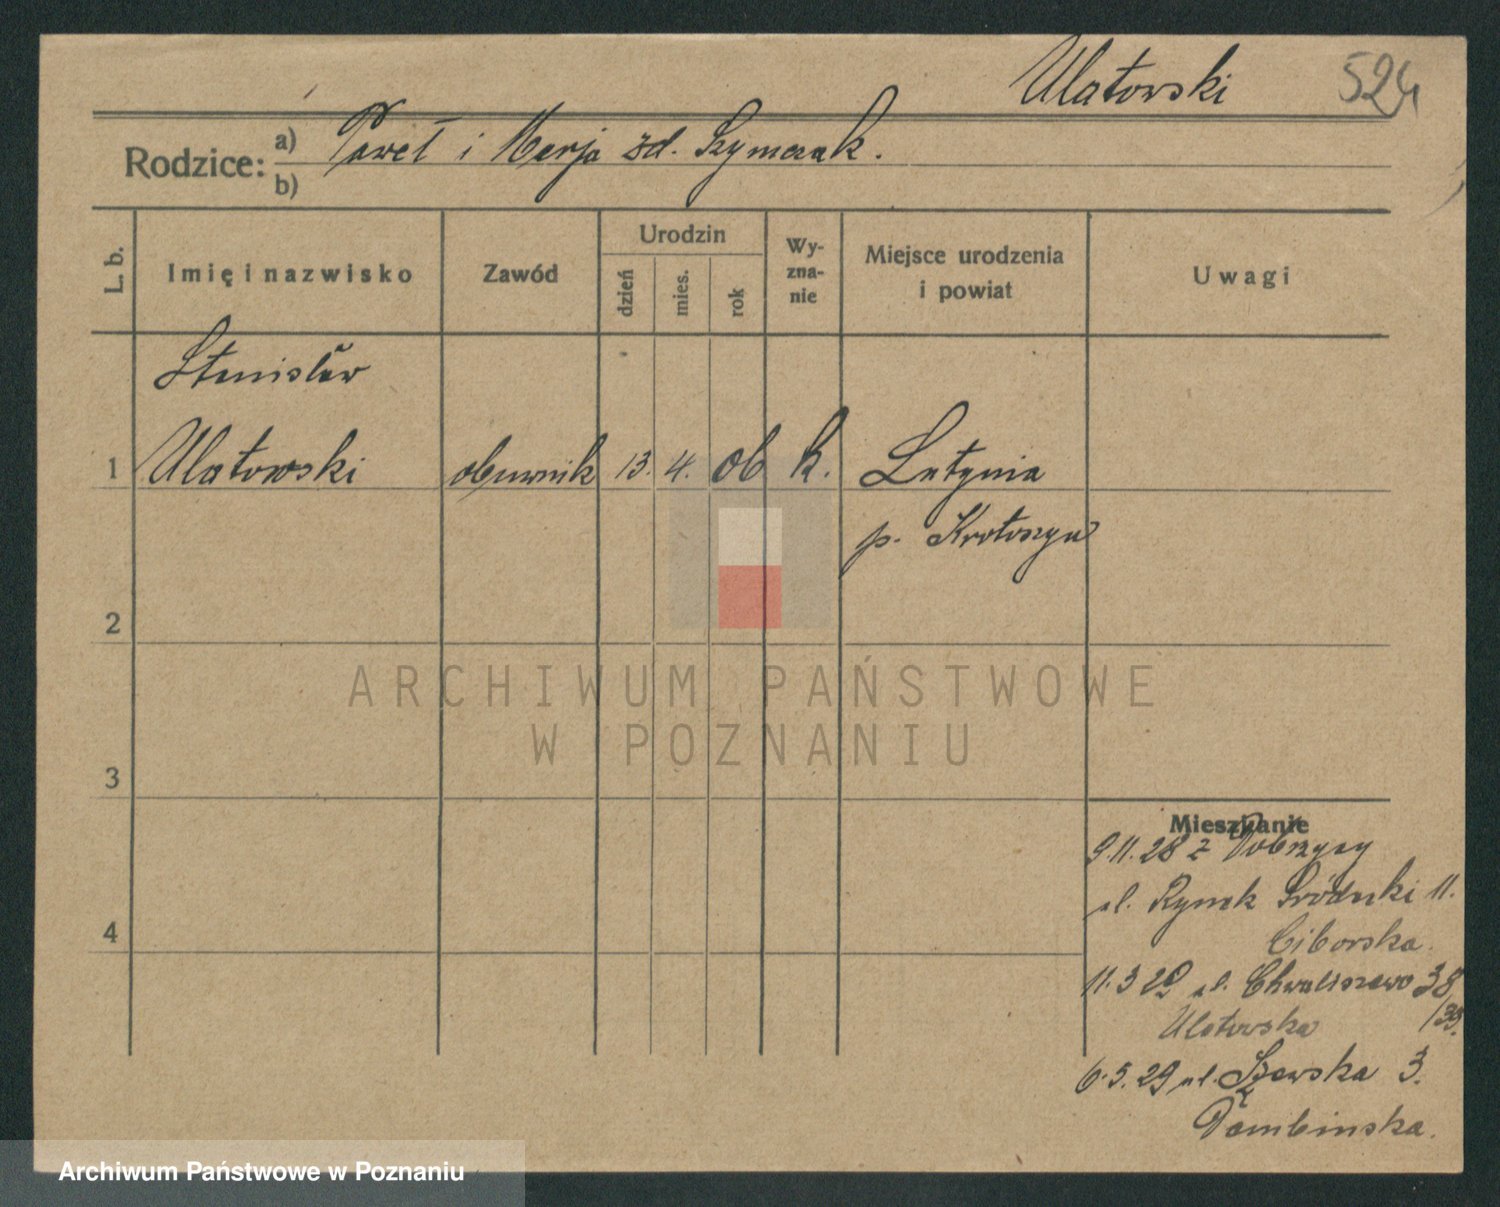 Ulatowski 524
Rodzice: a) Paweł i Marja zd. Szymczak.
b)
L. b. Imię i nazwisko Zawód Urodzin dzień mies. rok Wy-zna-nie Miejsce urodzenia i powiat Uwagi
Stanisław
1 Ulatowski obuwnik 13. 4. 06 k. Lutynia
p. Krotoszyn
2
ARCHIWUM PAŃSTWOWE
W POZNANIU
3
Mieszkanie
9.11.28 z Dobrzycy
ul. Rynek Śródecki 11.
4
Ciborska.
11.3 29 ul. Chwaliszewo 38
/39.
Ulatowska
6.5.29 ul. Szewska 3.
Dambinska.
Archiwum Państwowe w Poznaniu